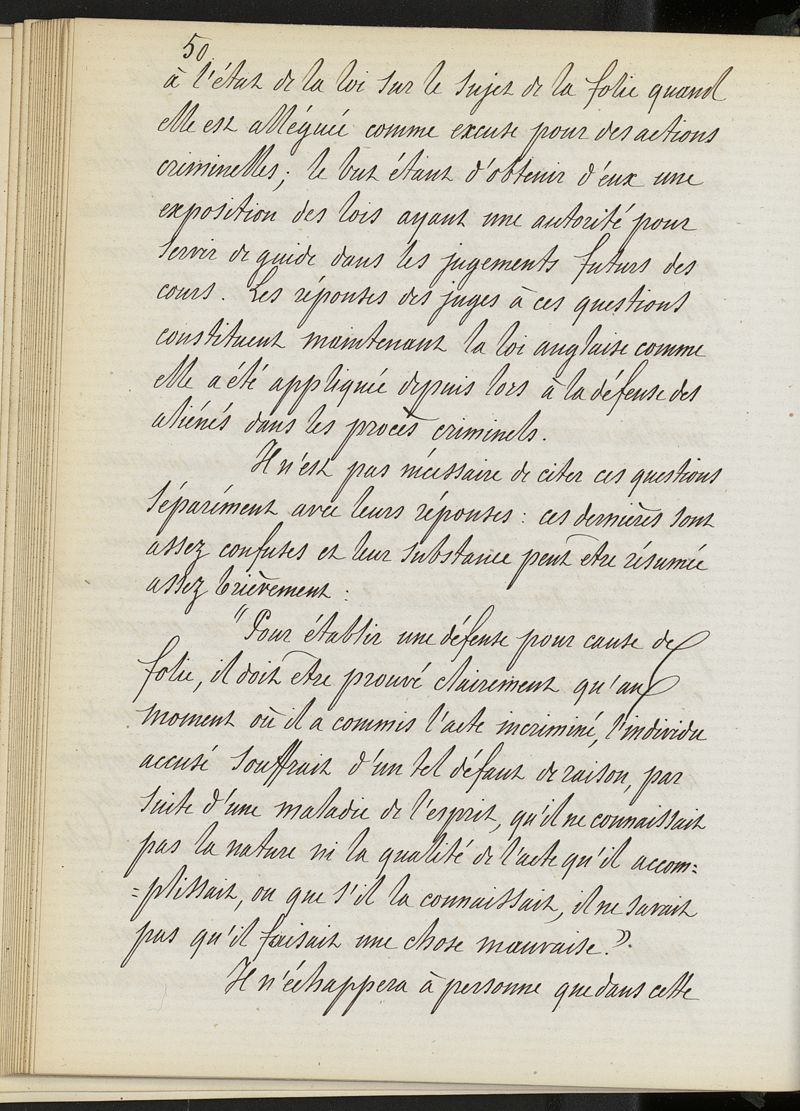 50
à l'état de la loi sur le sujet de la folie quand
elle est alléguée comme excuse pour des actions
criminelles; le but étant d'obtenir d'eux une
exposition des lois ayant une autorité pour
servir de guide dans les jugements futurs des
cours. Les réponses des juges à ces questions
constituent maintenant la loi anglaise comme
elle a été appliquée depuis lors à la défense des
aliénés dans les procès criminels.
Il n'est pas nécessaire de citer ces questions
séparément avec leurs réponses : ces dernières sont
assez confuses et leur substance peut être résumée
assez brièvement :
"Pour établir une défense pour cause de
folie, il doit être prouvé clairement qu'au
moment où il a commis l'acte incriminé, l'individu
accusé souffrait d'un tel défaut de raison, par
suite d'une maladie de l'esprit, qu'il ne connaissait
pas la nature ni la qualité de l'acte qu'il accom=
=plissait, ou que s'il la connaissait, il ne savait
pas qu'il faisait une chose mauvaise.".
Il n'échappera à personne que dans cette